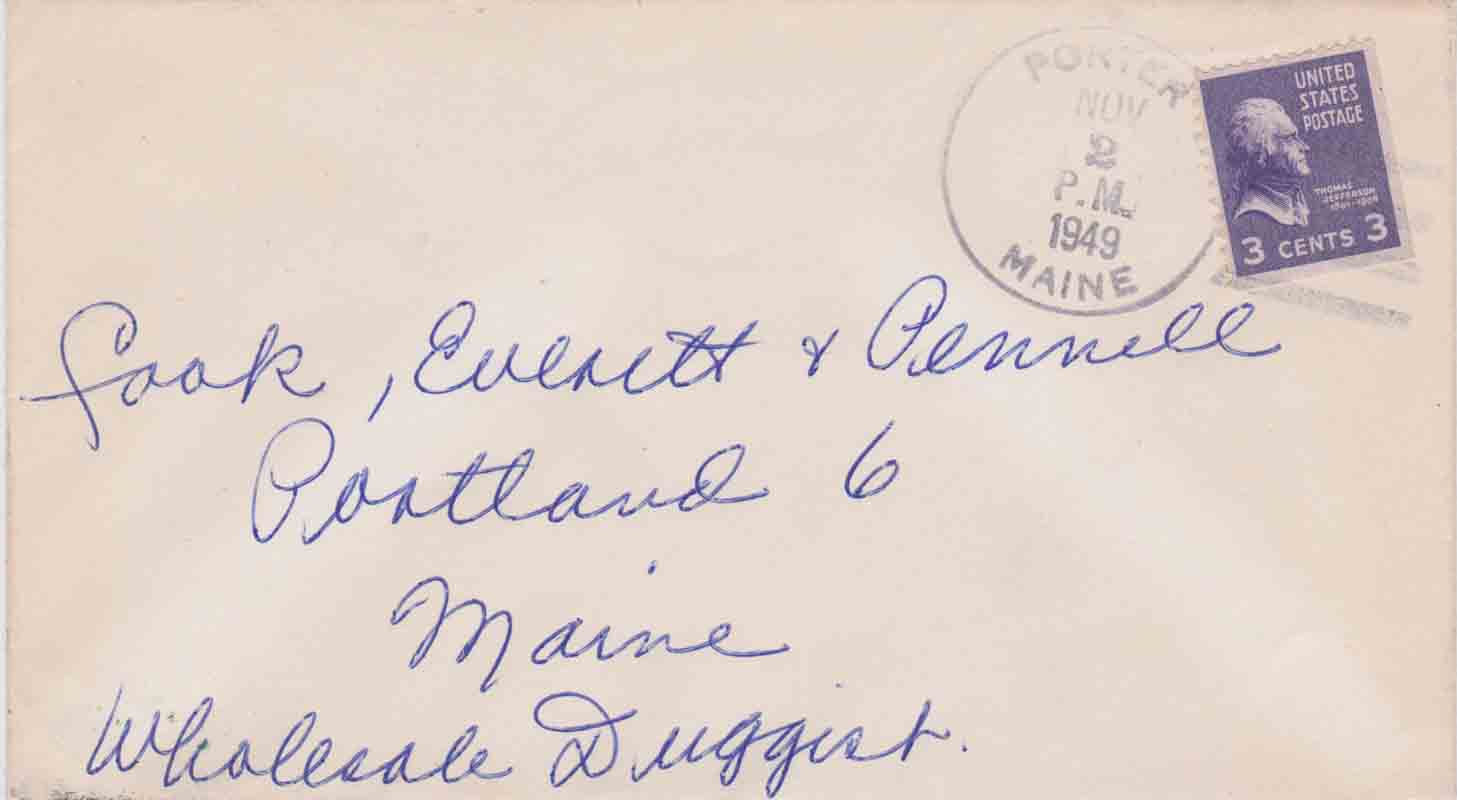 PORTER
NOV
2
P.M.
1949
MAINE
UNITED
STATES
POSTAGE
THOMAS
JEFFERSON
1801-1809
3 CENTS 3
Cook, Everett & Pennell
Portland 6
Maine
Wholesale Duggist.